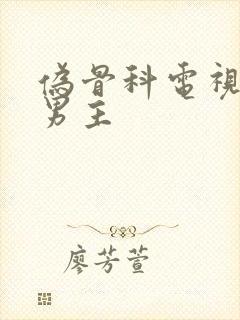 偽骨科電視
男主
廖芳萱